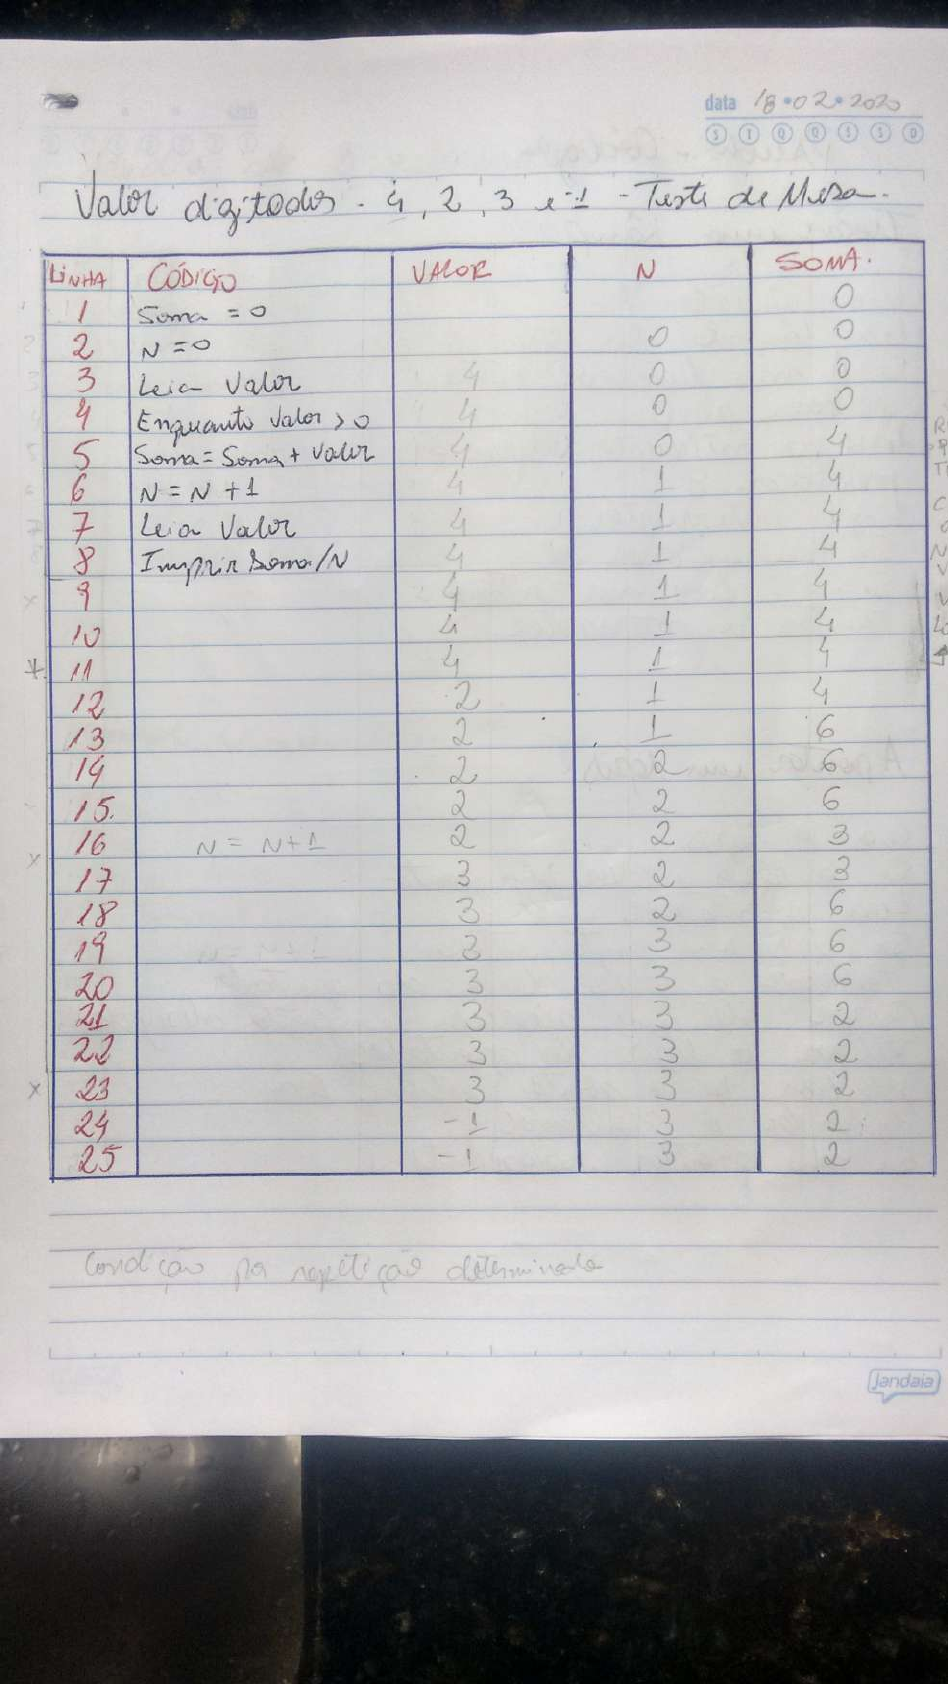 data 18•02•2020
S T Q Q S S D
Valor digitados. 4, 2, 3 e -1 - Teste de Mesa.
LINHA CÓDIGO VALOR N SOMA.
1 Soma = 0 0
2 N = 0 0 0
3 Leia Valor 4 0 0
4 Enquanto Valor > 0 4 0 0
5 Soma = Soma + Valor 4 0 4
6 N = N + 1 4 1 4
7 Leia Valor 4 1 4
8 Imprir Soma/N 4 1 4
9 4 1 4
10 4 1 4
11 4 1 4
12 2 1 4
13 2 1 6
14 2 2 6
15. 2 2 6
16 N = N+1 2 2 3
17 3 2 3
18 3 2 6
19 3 3 6
20 3 3 6
21 3 3 2
22 3 3 2
23 3 3 2
24 -1 3 2
25 -1 3 2
Condição por repetição determinada
jandaia